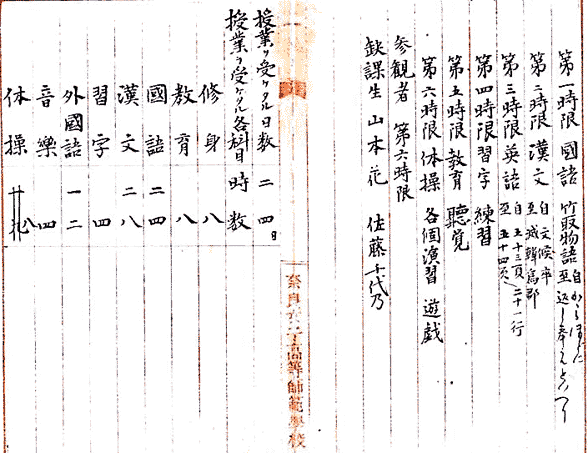 第一時限 國語 竹取物語 自 かゝるほどに
至 返し奉る
第二時限 漢文 自 文候卒
至 滅韓為郡
第三時限 英語 自 五十三頁
至 五十四頁 二十一行
第四時限 習字 練習
第五時限 教育 聽覚
第六時限 体操 各個演習 遊戯
参観者 第六時限
缺課生 山本花 佐藤千代乃
奈良女子高等師範學校
授業ヲ受ケタル日数 二四日
授業ヲ受ケタル各科目時数
修身 八
教育 八
國語 二四
漢文 二八
習字 四
外國語 一二
音樂 四
体操 八